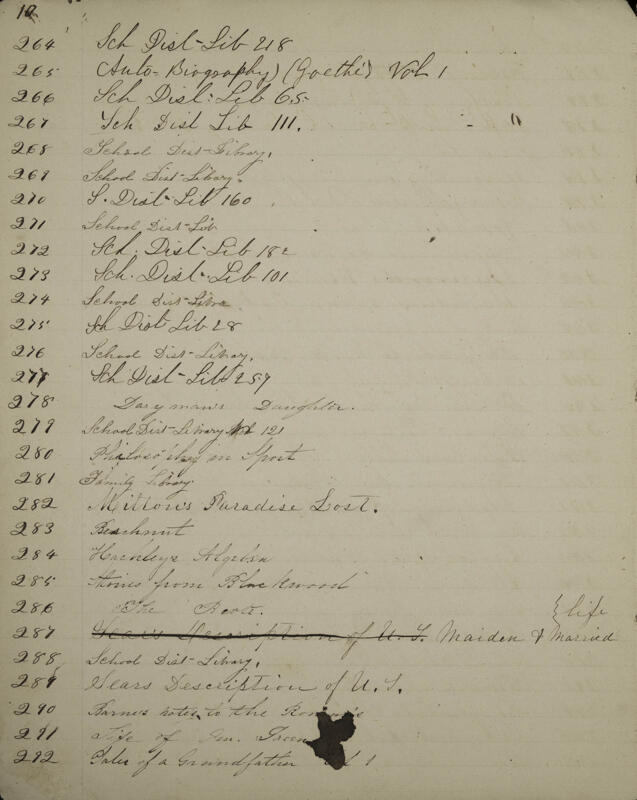 10
264 Sch Dist-Lib 218
265 Auto-Biography (Goethe) Vol 1
266 Sch Dist. Lib 65
267 Sch Dist Lib 111. - "
268 School Dist-Library.
269 School Dist-Library.
270 S. Dist-Lib 160
271 School Dist-Lib
272 Sch. Dist-Lib 182
273 Sch. Dist-Lib 101
274 School Dist-Libra
275 Sch Dist Lib 28
276 School Dist-Library.
277 Sch Dist-Lib 257
278 Daryman's Daughter.
279 School Dist-Library 121
280 in Sport
281 Family Library.
282 Milton's Paradise Lost.
283 Beechnut
284 Hackleys Algebra
285 from Blackwood
286 The
{life
287 Sears Description of U.S. Maiden & Married
288 School Dist-Library.
289 Sears Description of U.S.
290 Barnes notes to the Romans
291 Life of Gen.
292 Tales of a Grandfather 1